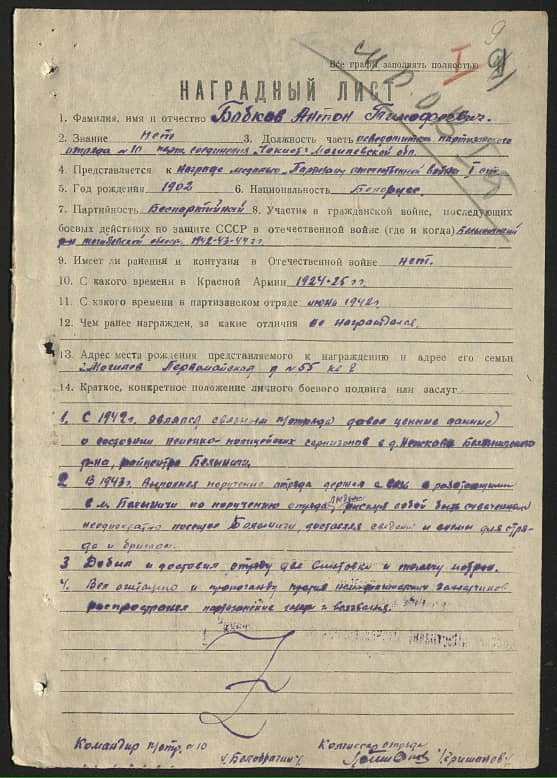 9
Все графы заполнять полностью
I
НАГРАДНЫЙ ЛИСТ
1. Фамилия, имя и отчество Бобков Антон Тимофеевич.
2. Звание нет 3. Должность часть партизанского
отряда № 10 соединения Могилевской обл.
4. Представляется к награде медалью "Партизану отечественной войны I ст.
5. Год рождения 1902 6. Национальность Белорусс.
7. Партийность Беспартийный 8. Участие в гражданской войне, последующих
боевых действиях по защите СССР в отечественной войне (где и когда) Белыничский
р-н могилевской 1942-43-44 гг.
9. Имеет ли ранения и контузия в Отечественной войне нет.
10. С какого времени в Красной Армии 1924-25 гг.
11. С какого времени в партизанском отряде июнь 1942 г
12. Чем ранее награжден, за какие отличия не награждался.
13. Адрес места рождения представляемого к награждению и адрес его семьи
г. Могилев Первомайская д № 55 кв 8
14. Краткое, конкретное положение личного боевого подвига или заслуг
1. С 1942 г. являлся связным п/отряда давал ценные данные
о состоянии немецко-полицейских гарнизонов в д. Белыничского
р-на, райцентра Белыничи.
2 В 1943 г. Выполняя поручение отряда держал связь с работающими
в м. Белыничи по поручению отряда рискуя собой быть схваченным
неоднократно посещал Белыничи, доставлял сведения и для отря-
да и бригады.
3 Добыл и доставил отряду две винтовки и тысячу патрон.
4. Вел агитацию и пропаганду против захватчиков
распространял партизанские и воззвания.
Командир п/отр. № 10
Комиссар отряда